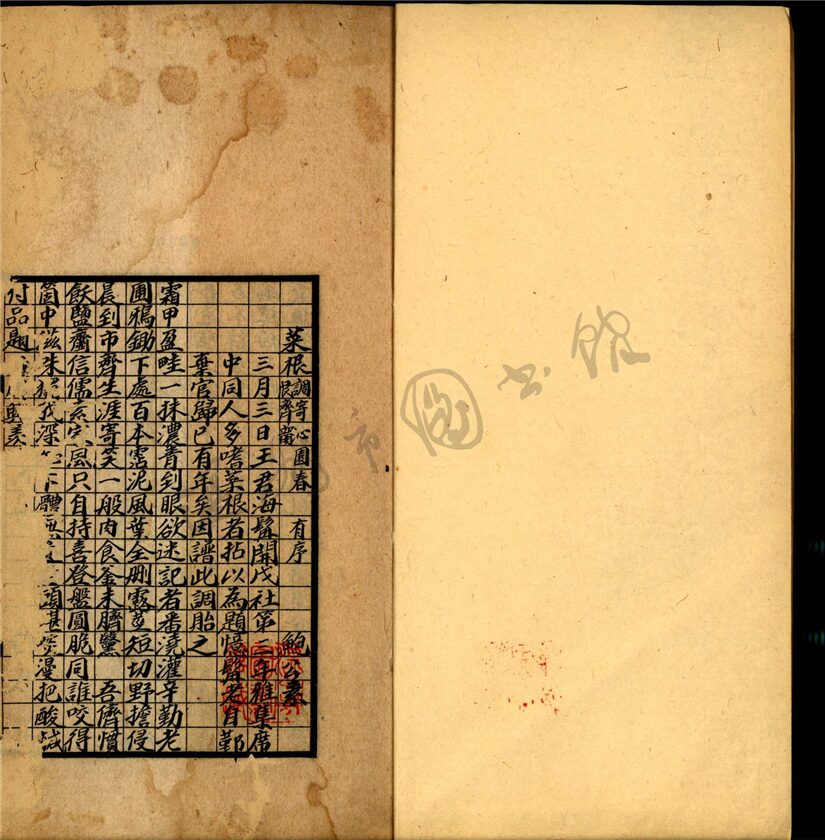 菜根調寄心園春 有序 鮑公
三月三日王君海髯開戊社第三年雅集席
中同人多嗜菜根者拈以為題憶髯老自鄞
棄官歸已有年矣因譜此調胎之
霜甲盈畦一抹濃青到眼欲迷記者番澆灌辛勤老
圃鴉鋤下處百本雲泥風葉全刪露莖短切野擔侵
晨到市齊生涯寄笑一般肉食釜未臍驚 吾儕慣
飫鹽齏信儒素家風只自持喜登盤圓脆同誰咬得
箇中滋 我深 下體 頭甚 漫把酸鹹
付品題
市圖書館